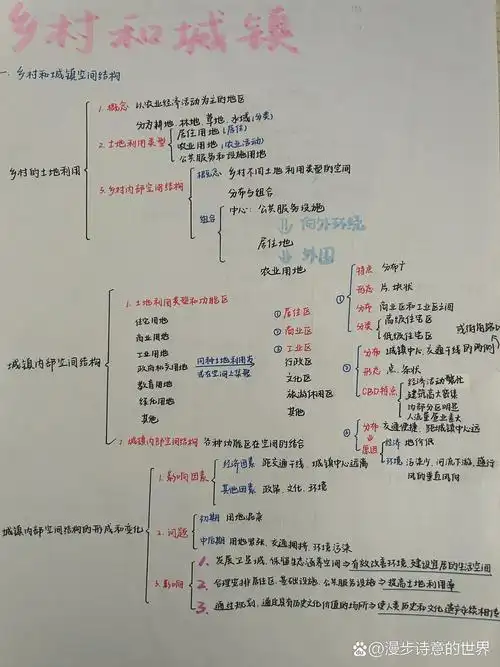 乡村和城镇
一. 乡村和城镇空间结构
乡村的土地利用
1. 概念 以农业经济活动为主的地区
分为耕地、林地、草地、水域(分类)
2. 土地利用类型
居住用地(居住)
农业用地(农业活动)
公共服务和设施用地
3. 乡村内部空间结构
概念 乡村不同土地利用类型的空间
分布与组合
组合
中心: 公共服务设施
向外环绕
居住地
外围
农业用地
城镇内部空间结构
1. 土地利用类型和功能区
住宅用地
商业用地
工业用地
政府和公用地
教育用地
绿化用地
其他
同种土地利用方
式在空间上集聚
① 居住区
② 商业区
③ 工业区
行政区
文化区
旅游休闲区
其他
①
特点 分布广
形态 片、块状
分布 商业区和工业区之间
分类
高级住宅区
低级住宅区
②
分布 城镇中心、交通干线的两侧
形态 点、条状
CBD特点
经济活动繁忙
建筑高大密集
内部分区明显
人流量昼夜差大
③
分布 交通便捷、距城镇中心远
原因
经济 地价低
环境 污染少、河流下游、盛行
风的垂直风向
2. 城镇内部空间结构 各种功能区在空间的结合
城镇内部空间结构的形成和变化
1. 影响因素
经济因素 距交通干线、城镇中心远离
其他因素 政策、文化、环境
2. 问题
初期 用地混杂
中后期 用地紧张、交通拥挤、环境污染
3. 影响
1. 发展卫星城, 保留生态涵养空间⇒有效改善环境, 建设宜居的生活空间
2. 合理安排居住区、基础设施、公共服务设施⇒提高土地利用率
3. 通过规划, 通过具有历史文化价值的场所⇒使人类历史和文化遗产永续相传
@漫步诗意的世界